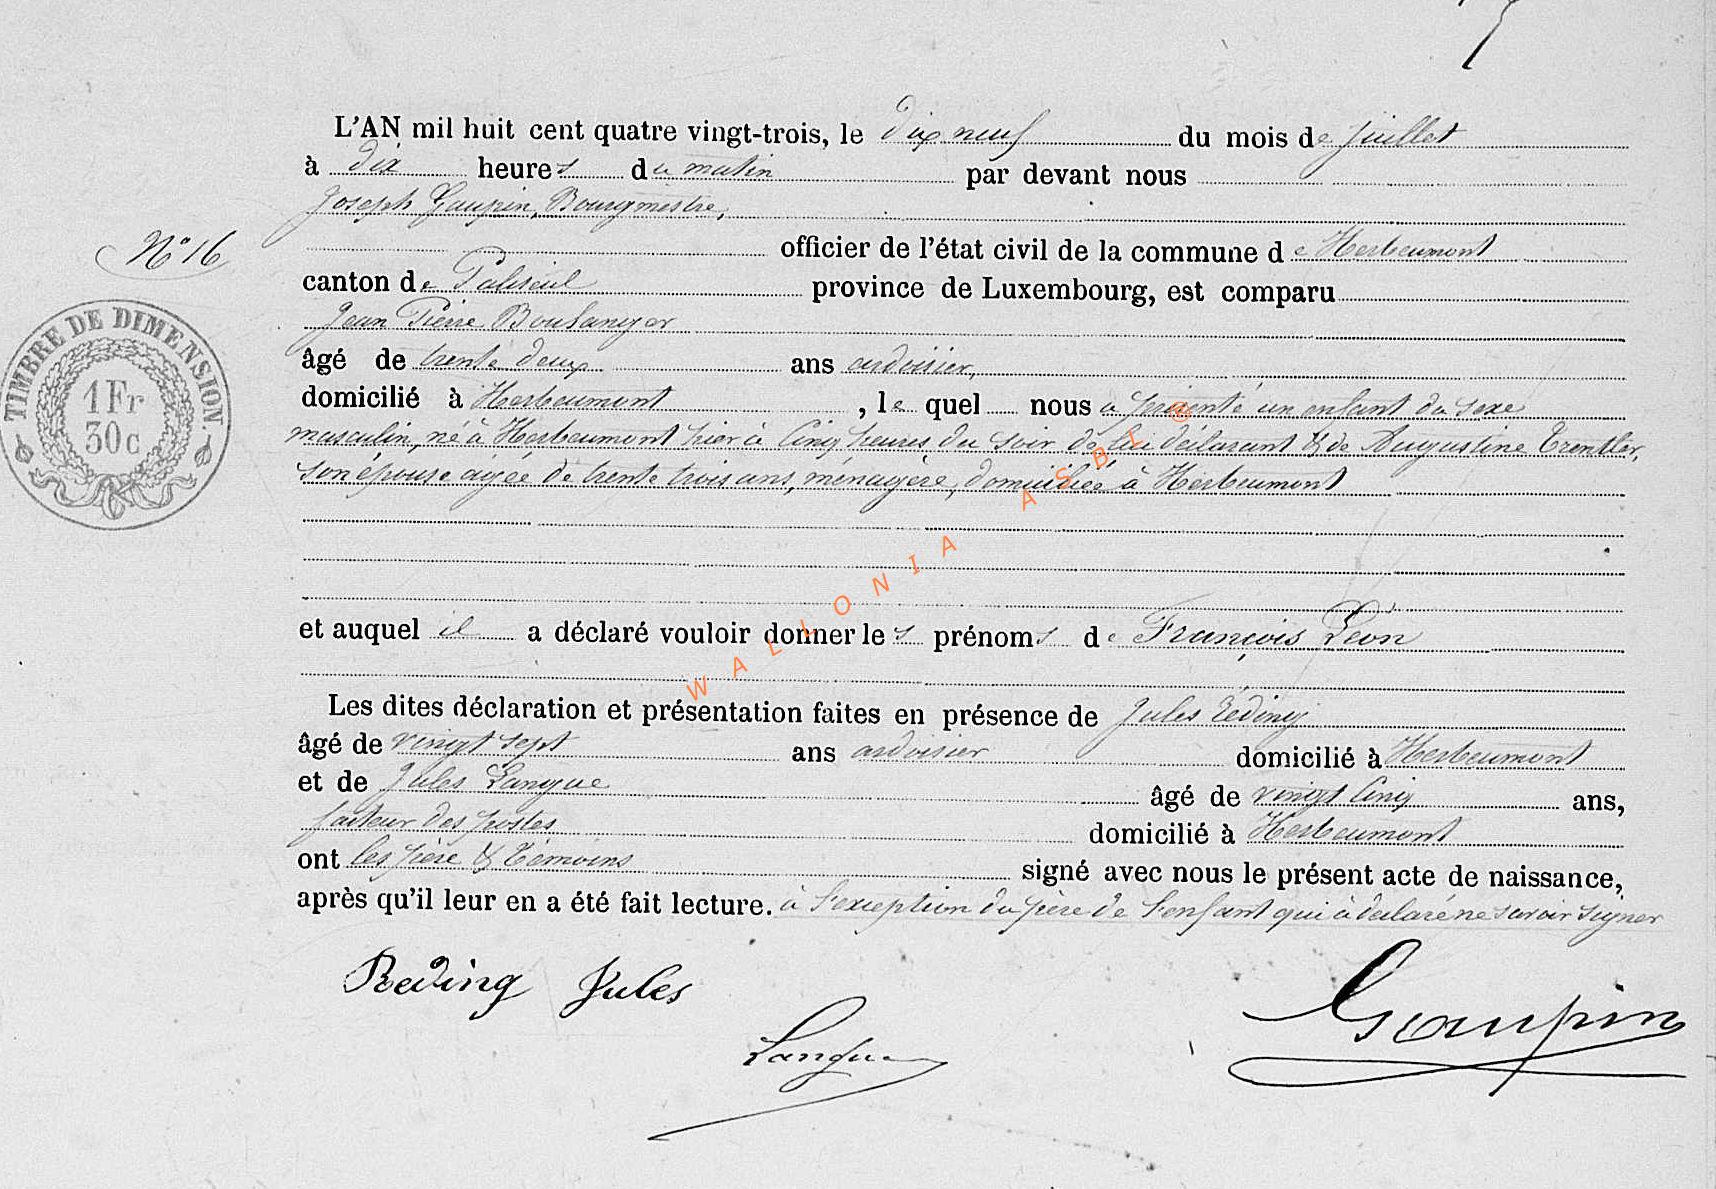 L'AN mil huit cent quatre vingt-trois, le dix neuf du mois de Juillet
à dix heures du matin par devant nous
Joseph Gaupin, Bourgmestre,
officier de l'état civil de la commune de Herbeumont
N° 16
canton de Paliseul province de Luxembourg, est comparu
Jean Pierre Boulanger
âgé de trente deux ans ardoisier,
domicilié à Herbeumont, le quel nous a présenté un enfant du sexe
masculin, né à Herbeumont hier à Cinq heures du soir de lui déclarant & de Augustine Trentler,
son épouse agée de trente trois ans, ménagère, domiciliée à Herbeumont
TIMBRE DE DIMENSION.
1 Fr
30 c
et auquel il a déclaré vouloir donner les prénoms de François Léon
Les dites déclaration et présentation faites en présence de Jules Réding
âgé de vingt sept ans ardoisier domicilié à Herbeumont
et de Jules Langue âgé de vingt Cinq ans,
facteur des postes domicilié à Herbeumont
ont les père & Témoins signé avec nous le présent acte de naissance,
après qu'il leur en a été fait lecture. à l'exception du père de l'enfant qui a déclaré ne savoir signer
Reding Jules
Langue
Gaupin
WALLONIA ASBL ©